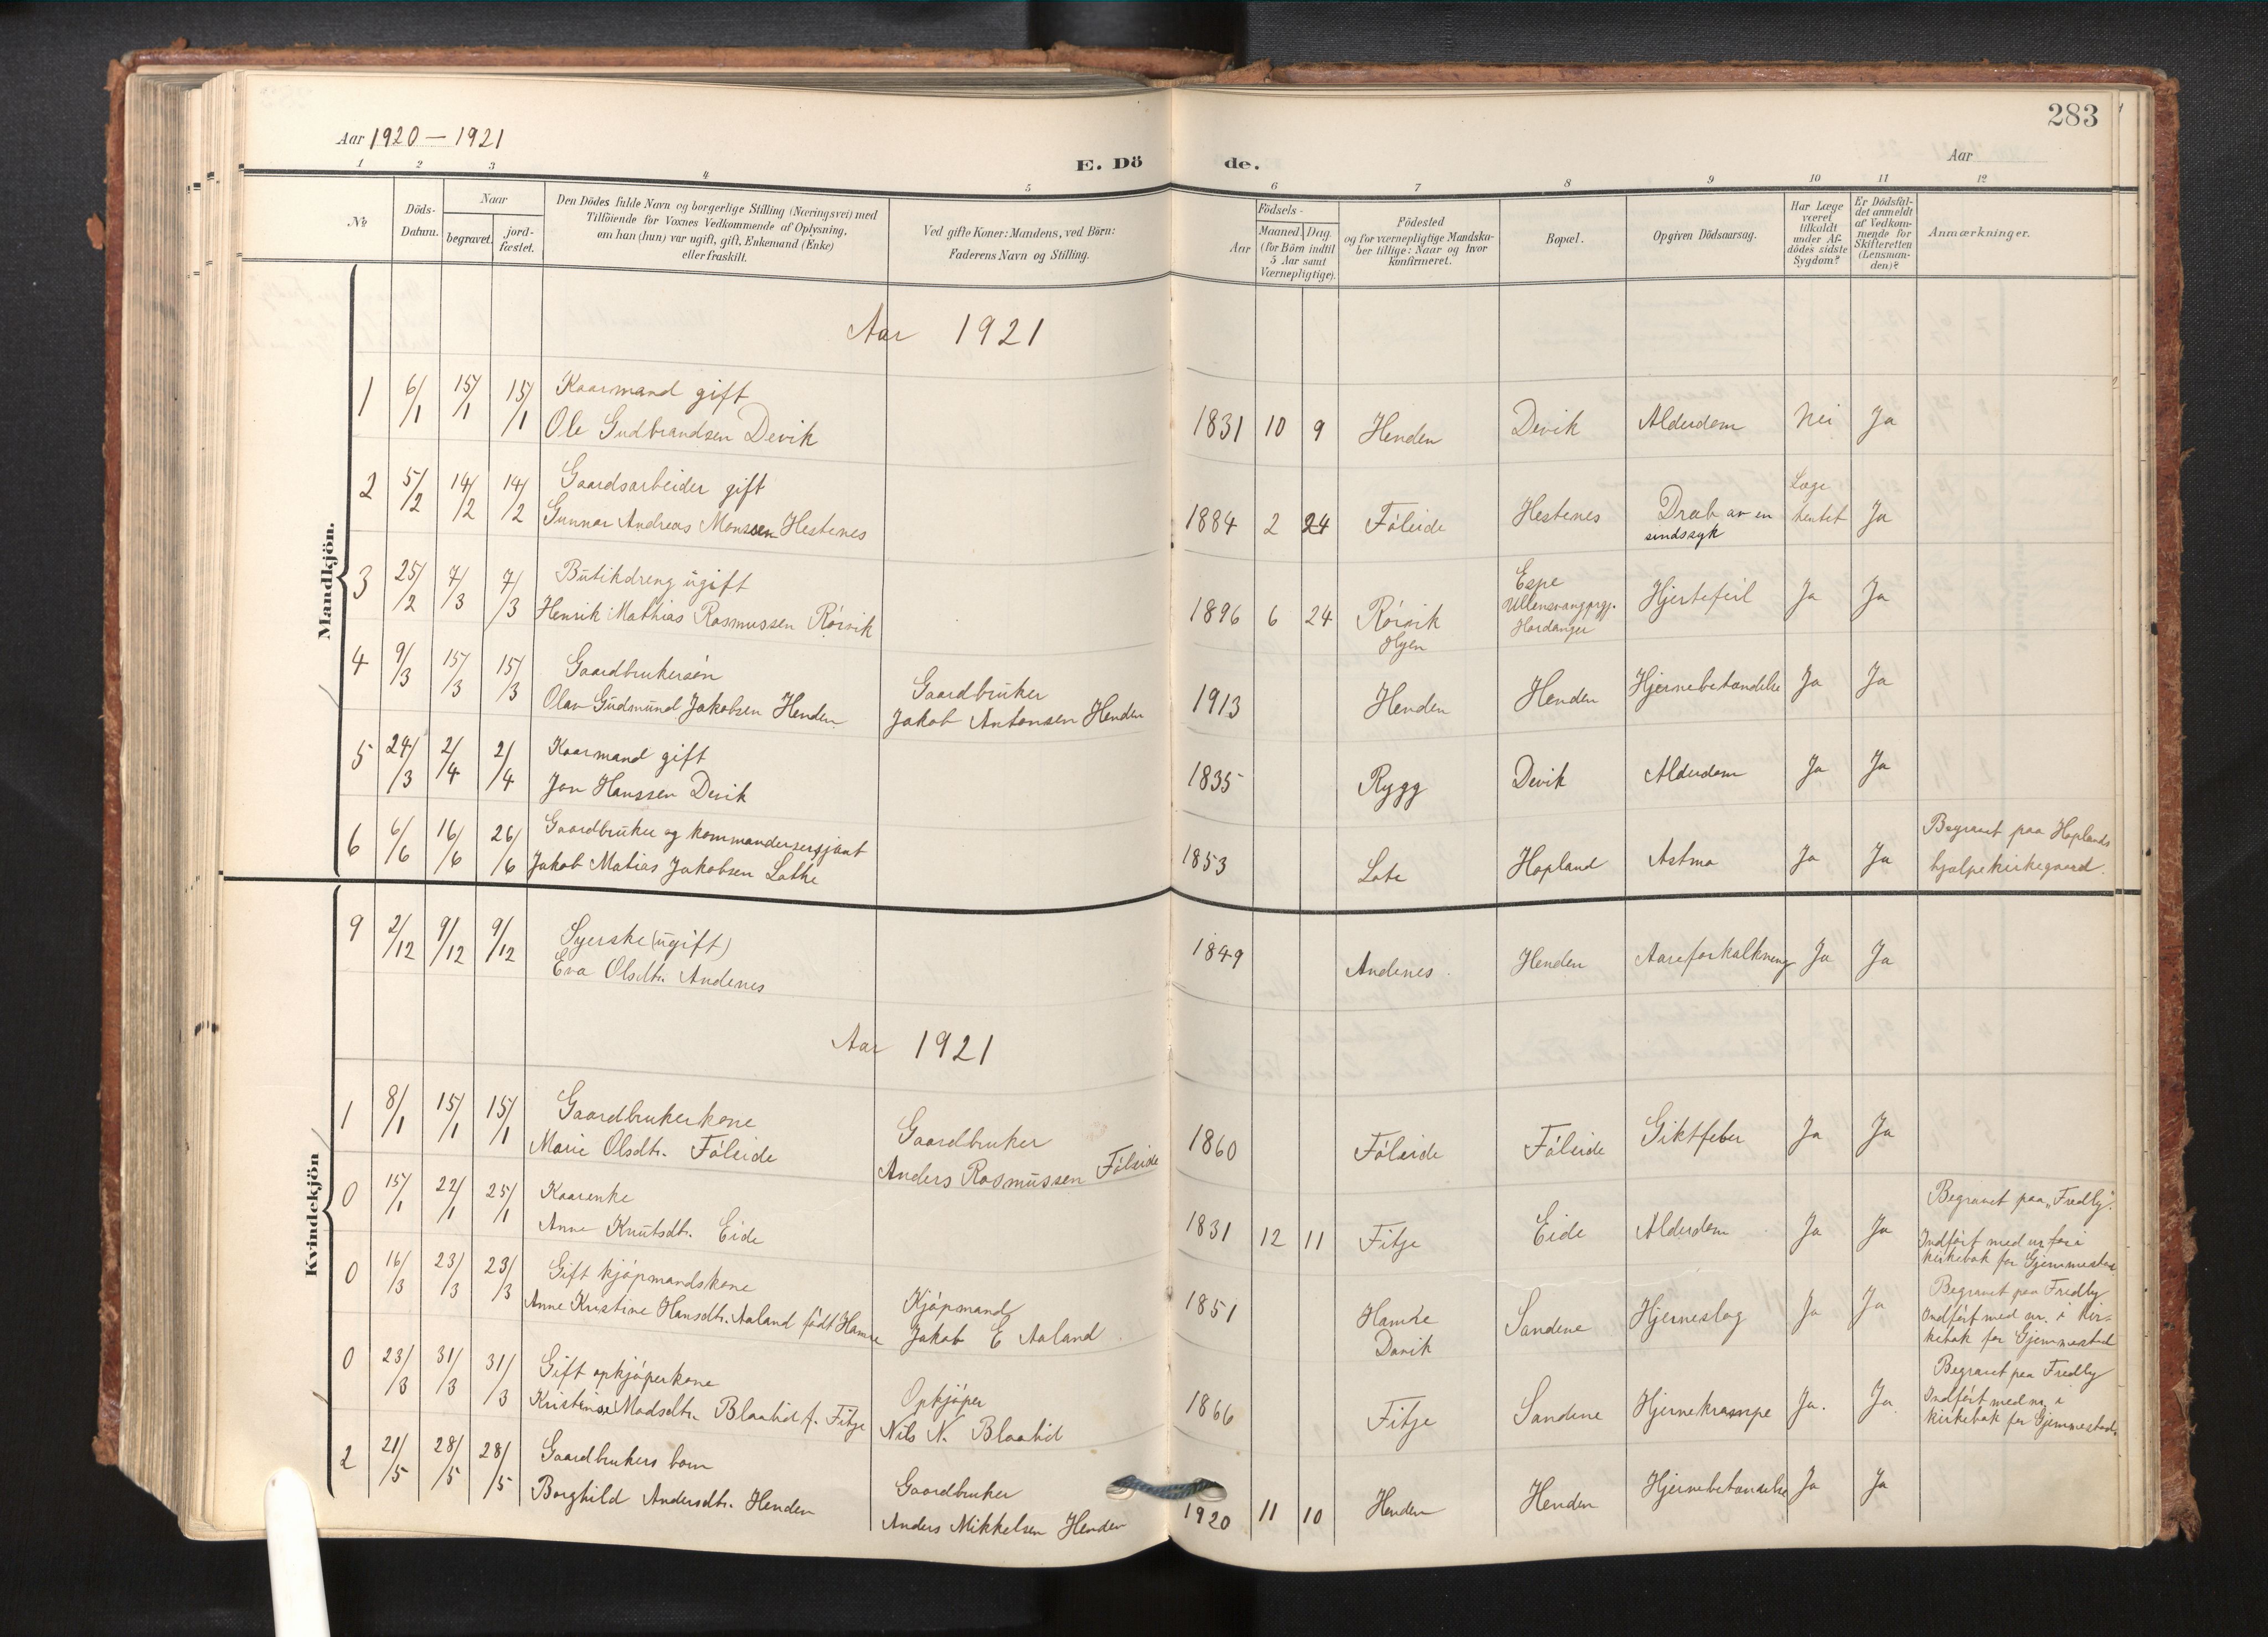 283
Aar 1920 — 1921
E. Dö de.
Aar
1 2 3 4 5 6 7 8 9 10 11 12
№
Döds-
Datum.
Naar
begravet.
jord-
fæstet.
Den Dödes fulde Navn og borgerlige Stilling (Næringsvei) med
Tilföiende for Voxnes Vedkommende af Oplysning,
om han (hun) var ugift, gift, Enkemand (Enke)
eller fraskilt.
Ved gifte Koner: Mandens, ved Börn:
Faderens Navn og Stilling.
Födsels-
Aar
Maaned. Dag.
(for Börn indtil
5 Aar samt
Værnepligtige).
Födested
og for værnepligtige Mandska-
ber tillige: Naar og hvor
konfirmeret.
Bopæl.
Opgiven Dödsaarsag.
Har Læge
været
tilkaldt
under Af-
dödes sidste
Sygdom?
Er Dödsfal-
det anmeldt
af Vedkom-
mende for
Skifteretten
(Lensman-
den)?
Anmærkninger.
Mandkjön.
Aar 1921
1 6/1 15/1 15/1 Kaarmand gift
Ole Gudbrandsen Devik 1831 10 9 Henden Devik Alderdom Nei Ja
2 5/2 14/2 14/2 Gaardsarbeider gift
Gunnar Andreas Monssen Hestenes 1884 2 24 Föleide Hestenes Drab av en
sindssyk
Læge
hentet Ja
3 25/2 7/3 7/3 Butikdreng ugift
Henrik Mathias Rasmussen Rörvik 1896 6 24 Rörvik
Hyen
Espe
Ullensvangprgj.
Hardanger
Hjertefeil Ja Ja
4 9/3 15/3 15/3 Gaardbrukersön
Olav Gudmund Jakobsen Henden
Gaardbruker
Jakob Antonsen Henden 1913 Henden Henden Hjernebetændelse Ja Ja
5 24/3 2/4 2/4 Kaarmand gift
Jon Hanssen Devik 1835 Rygg Devik Alderdom Ja Ja
6 6/6 16/6 26/6 Gaardbruker og kommandersersjant
Jakob Matias Jakobsen Lothe 1853 Lote Hopland Astma Ja Ja
Begravet paa Hoplands
hjælpekirkegaard.
Kvindekjön
9 2/12 9/12 9/12 Syerske (ugift)
Eva Olsdtr. Andenes 1849 Andenes. Henden Aareforkalkning Ja Ja
Aar 1921
1 8/1 15/1 15/1 Gaardbrukerkone
Marie Olsdtr. Föleide
Gaardbruker
Anders Rasmussen Föleide 1860 Föleide Föleide Giktfeber Ja Ja
0 15/1 22/1 25/1 Kaarenke
Anne Knutsdtr. Eide 1831 12 11 Fitje Eide Alderdom Ja Ja
Begravet paa "Fredly".
Indfört med nr for i
kirkebok for Gjemmestad
0 16/3 23/3 23/3 Gift kjöpmandskone
Anne Kristine Hansdtr. Aaland födt Hamre
Kjöpmand
Jakob E Aaland 1851 Hamre
Davik
Sandene Hjerneslag Ja Ja
Begravet paa Fredly
Indfört med nr. i kir-
kebok for Gjemmestad
0 23/3 31/3 31/3 Gift opkjöperkone
Kristense Madsdtr. Blaalid f. Fitje
Opkjöper
Nils N. Blaalid 1866 Fitje Sandene Hjernekrampe Ja. Ja
Begravet paa Fredly
Indfört med nr i
kirkebok for Gjemmestad.
2 21/5 28/5 28/5 Gaardbrukers barn
Borghild Andersdtr. Henden
Gaardbruker
Anders Mikkelsen Henden 1920 11 10 Henden Henden Hjernebetændelse Ja Ja